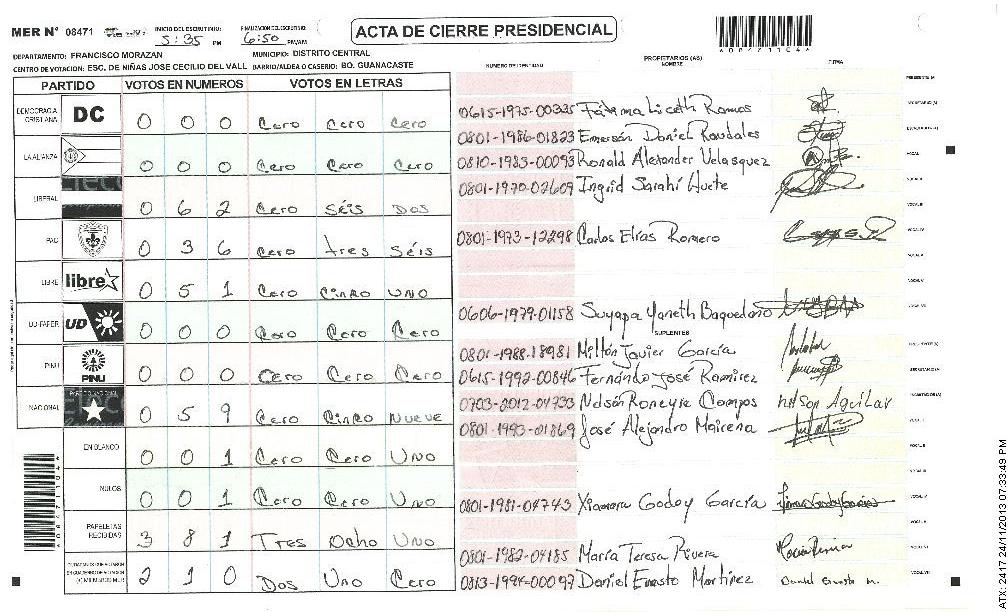 MER N° 08471 INICIO DEL ESCRUTINIO: 5:35 PM FINALIZACION DEL ESCRUTINIO: 6:50 PM/AM ACTA DE CIERRE PRESIDENCIAL
DEPARTAMENTO: FRANCISCO MORAZAN MUNICIPIO: DISTRITO CENTRAL
CENTRO DE VOTACION: ESC. DE NIÑAS JOSE CECILIO DEL VALL BARRIO/ALDEA O CASERIO: BO. GUANACASTE
NUMERO DE IDENTIDAD PROPIETARIOS (AS) NOMBRE FIRMA
PARTIDO VOTOS EN NUMEROS VOTOS EN LETRAS
DEMOCRACIA CRISTIANA DC 0 0 0 Cero Cero Cero
LA ALIANZA 0 0 0 Cero Cero Cero
LIBERAL 0 6 2 Cero Séis Dos
PAC 0 3 6 Cero tres Séis
LIBRE libre 0 5 1 Cero Cinco Uno
UD-FAPER UD 0 0 0 Cero Cero Cero
PINU PINU 0 0 0 Cero Cero Cero
NACIONAL 0 5 9 Cero Cinco Nueve
EN BLANCO 0 0 1 Cero Cero Uno
NULOS 0 0 1 Cero Cero Uno
PAPELETAS RECIBIDAS 3 8 1 Tres Ocho Uno
CIUDADANOS QUE VOTARON EN CUADERNO DE VOTACION (+) MIEMBROS MER 2 1 0 Dos Uno Cero
0615-1975-00335 Fátima Liceth Ramos
0801-1986-01823 Emerson Daniel Raudales
0810-1983-00093 Ronald Alexander Velasquez
0801-1970-02609 Ingrid Sarahí Huete
0801-1973-12298 Carlos Elías Romero
0606-1979-01158 Suyapa Yaneth Baquedano
SUPLENTES
0801-1988-18981 Milton Javier García
0615-1992-00846 Fernándo José Ramirez
0703-2012-04733 Nelsón Roneyre Campos nelson Aguilar
0801-1993-01869 José Alejandro Mairena
0801-1981-04743 Xiomara Godoy García
0801-1982-04185 María Teresa Rivera
0813-1994-00097 Daniel Ernesto Martinez Daniel Ernesto M.
ATX: 2417 24/11/2013 07:33:49 PM